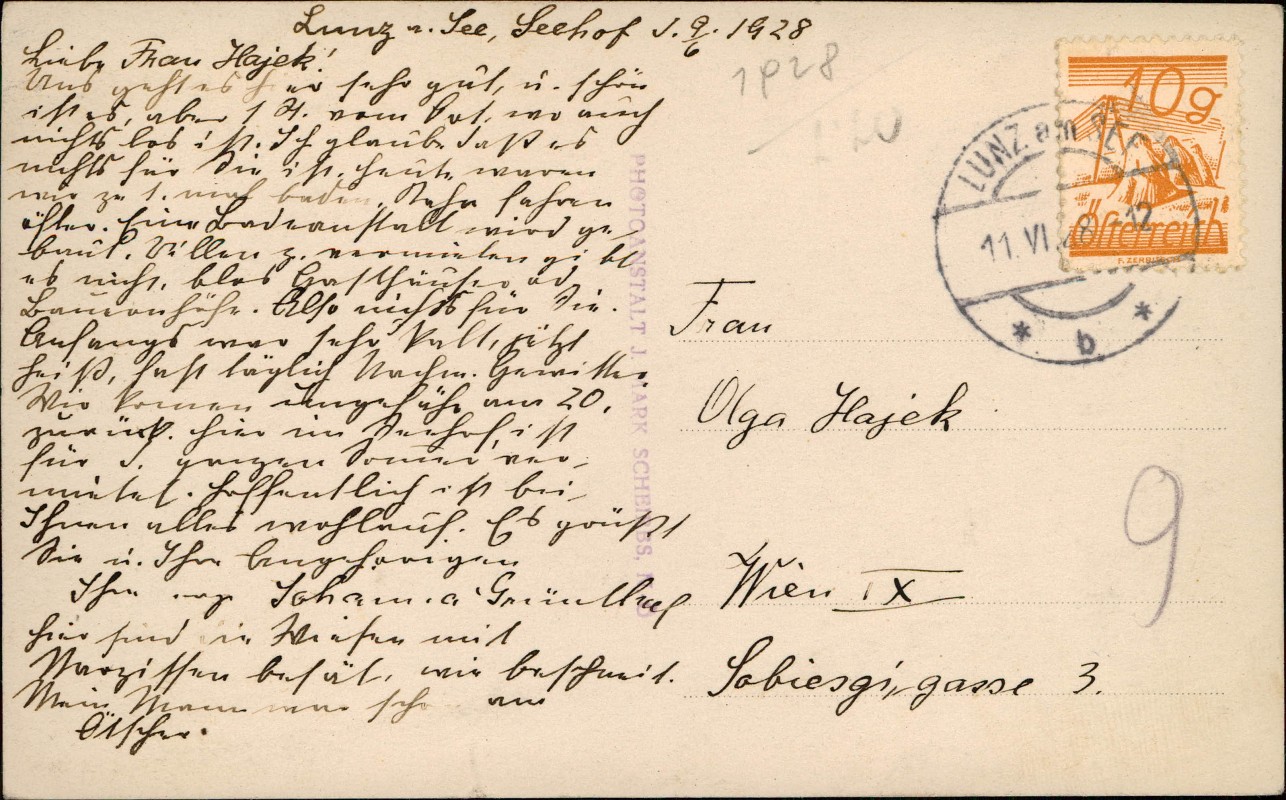 Lunz a. See, Seehof d. 9/6. 1928
Liebe Frau Hajek!
Uns geht es hier sehr gut, u. schön
ist es, aber 1 St. vom Ort, wo auch
nichts los ist. Ich glaube daß es
nichts für Sie ist. heute waren
wir zu 1. mal baden. Sehr fahren
öfter. Eine Badeanstalt wird ge-
baut. Villen z. vermieten gibt
es nicht, blos Gasthäuser od
Bauernhöfe. Also nichts für Sie.
Anfangs war sehr kalt, jetzt
heiß, fast täglich Nachm. Gewitter.
Wir komen ungefähr am 20.
zurück. hier im Seehof, ist
für d. ganzen Somer ver-
mietet. hoffentlich ist bei
Ihnen alles wohlauf. Es grüßt
Sie u. Ihre Angehörigen
Ihre Johanna
hier sind die Wiesen mit
Narzissen besät, wie beschneit.
Mein Mann war schon am
Ötscher.
1928
PHOTOANSTALT J. MARK SCHEIBBS, N
10g
Österreich
LUNZ am SEE
11. VI. 28 - 12
* b *
Frau
Olga Hajek
Wien IX
Sobiesgi, gasse 3.
9